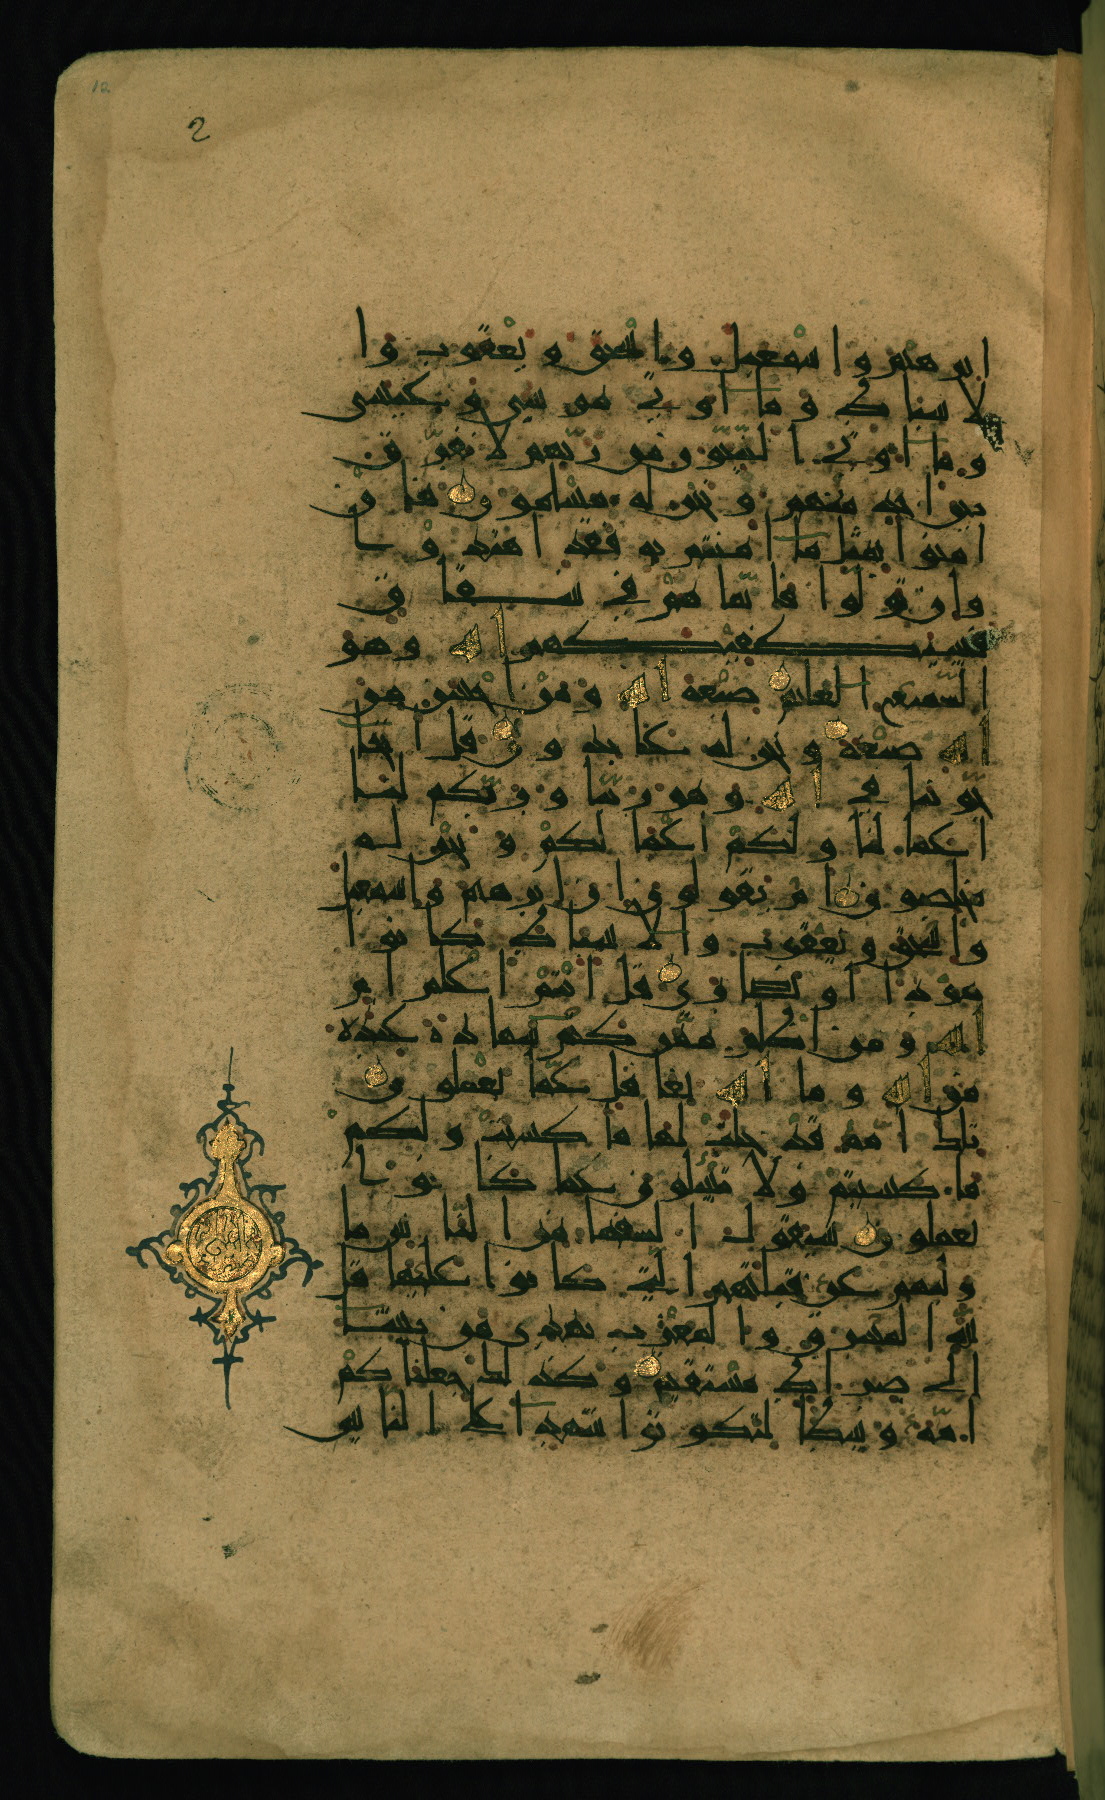 2
ابرهيم واسمعيل واسحق ويعقوب وا
لاسباط وما اوتى موسى وعيسى
وما اوتى النبيون من ربهم لا نفرق
بين احد منهم ونحن له مسلمون فان
امنوا بمثل ما امنتم به فقد اهتدوا
وان تولوا فانما هم في شقاق
فسيكفيكهم الله وهو
السميع العليم صبغة الله ومن احسن من
الله صبغة ونحن له عابدون قل اتحا
جوننا في الله وهو ربنا وربكم ولنا
اعملنا ولكم اعملكم ونحن له
مخلصون ام تقولون ان ابرهيم واسمعيل
واسحق ويعقوب والاسباط كانوا
هودا او نصارى قل انتم اعلم ام
الله ومن اظلم ممن كتم شهادة عنده
من الله وما الله بغافل عما تعملون
تلك امة قد خلت لها ما كسبت ولكم
ما كسبتم ولا تسئلون عما كانوا
يعملون سيقول السفها من الناس ما
وليهم عن قبلتهم التي كانوا عليها قل
لله المشرق والمغرب يهدي من يشا
الى صراط مستقيم وكذلك جعلناكم
امة وسطا لتكونوا شهدا على الناس